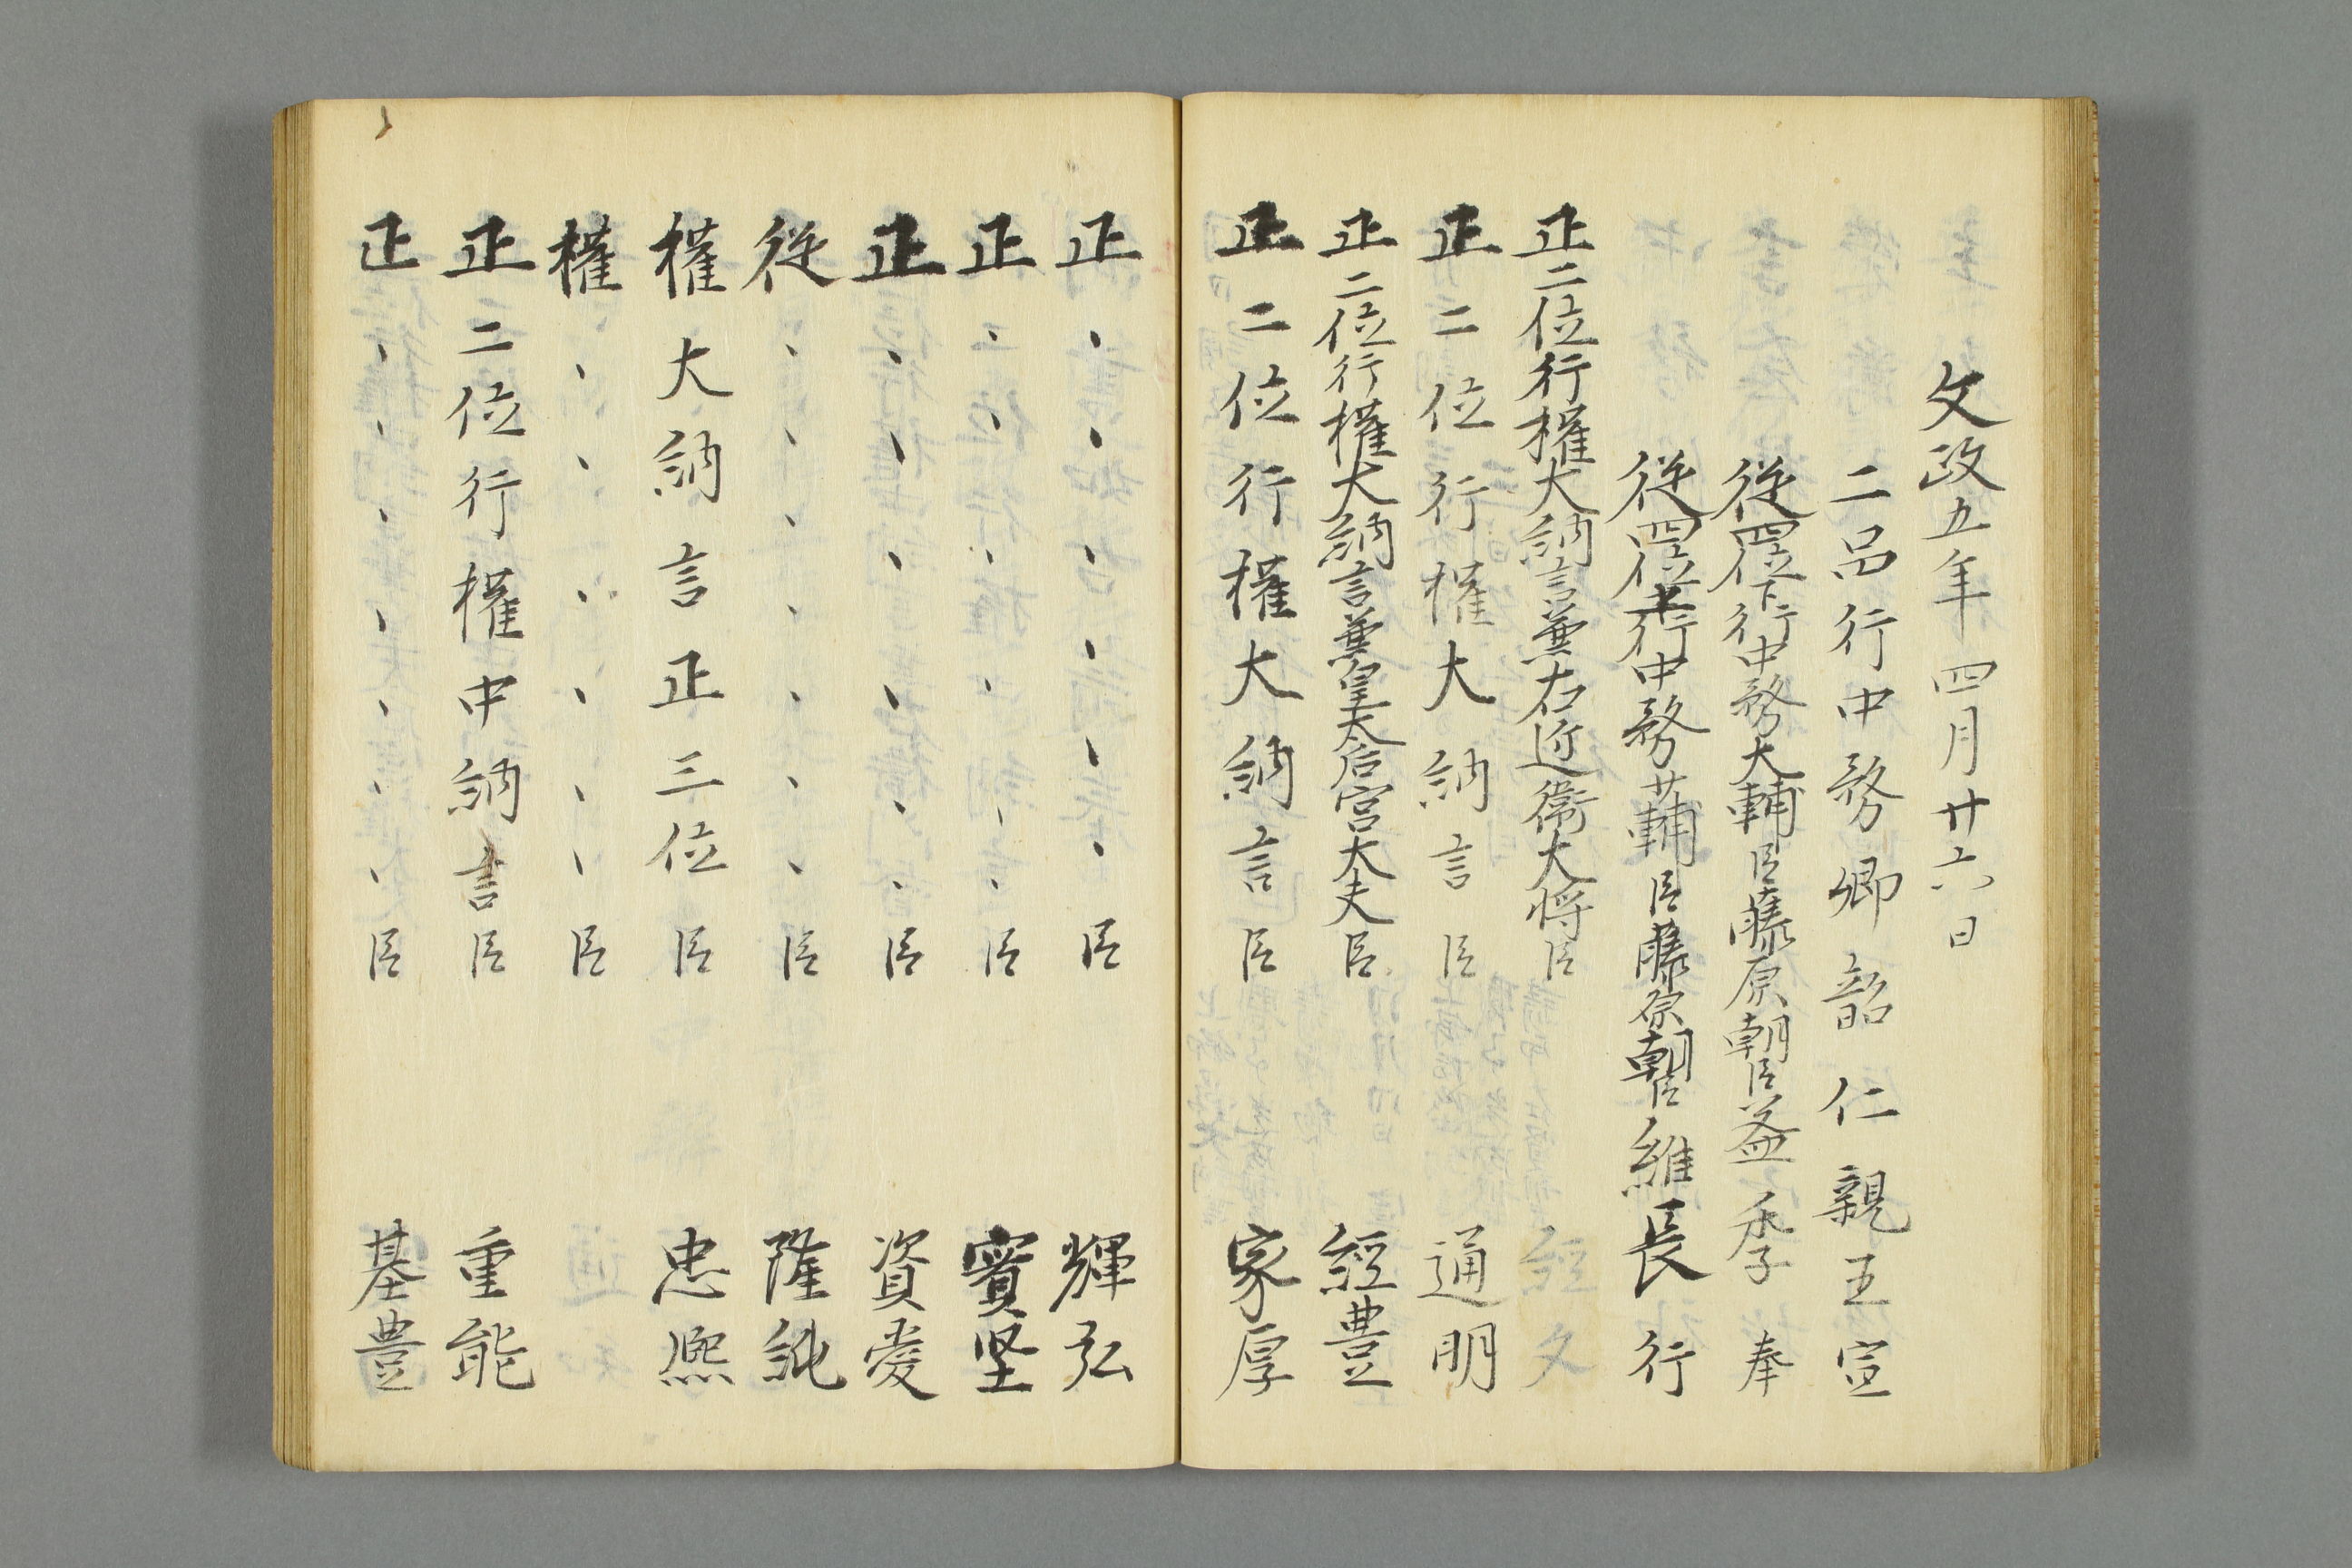 文政五年四月廿六日
二品行中務卿韶仁親王宣
從四位下行中務大輔臣藤原朝臣益季奉
從四位上行中務少輔臣藤原朝臣維長行
正二位行權大納言兼右近衛大将臣 経久
正二位行權大納言臣 通明
正二位行權大納言兼皇太后宮大夫臣 經豊
正二位行權大納言臣 家厚
正、、、、、、臣 輝弘
正、、、、、、臣 實堅
正、、、、、、臣 資愛
従、、、、、、、臣 隆純
權大納言正三位臣 忠熈
權、、、、、、臣
正二位行權中納言臣 重能
正、、、、、、、臣 基豊